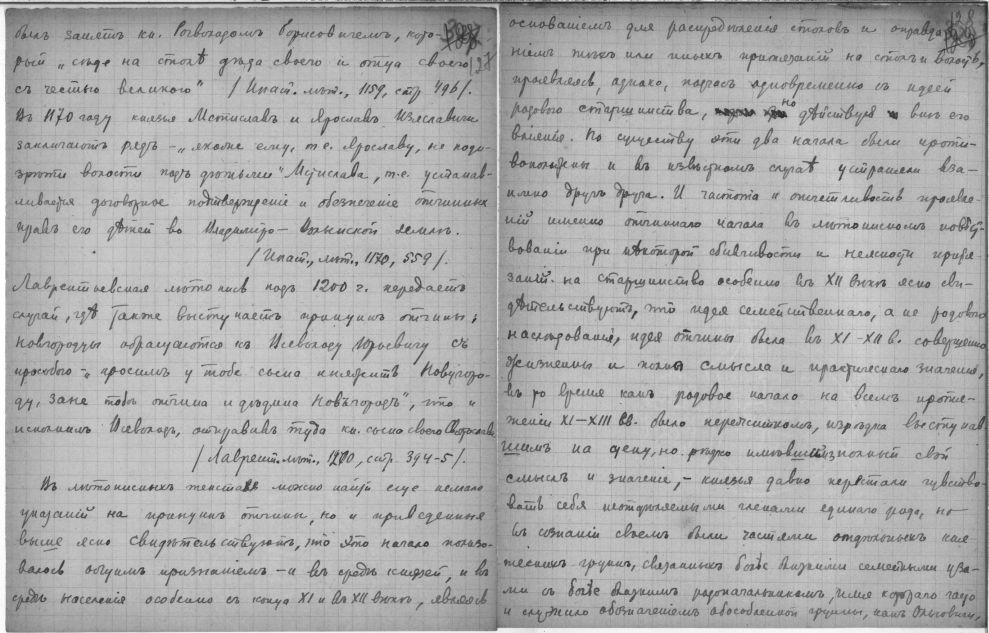 былъ занятъ кн. Рогволодомъ Борисовичемъ, кото-
рый „сѣде на столѣ дѣда своего и отца своего
съ честью великою" /Ипат. лѣт., 1159, стр. 496/.
Въ 1170 году князья Мстиславъ и Ярославъ Изяславичи
заключаютъ рядъ - „якоже ему, т.е. Ярославу, не подо-
зрѣти волости подъ дѣтьми" Мстислава, т.е. устанав-
ливается договорное подтвержденіе и обезпеченіе отчинныхъ
правъ его дѣтей во Владиміро-Волынской землѣ.
/Ипат., лѣт., 1170, 559/.
Лаврентьевская лѣтопись подъ 1200 г. передаетъ
случай, гдѣ также выступаетъ принципъ отчины;
новгородцы обращаются къ Всеволоду Юрьевичу съ
просьбою - „просимъ у тобе сына княжитъ Новугоро-
ду, зане тобѣ отчина и дѣдина Новъгородъ", что и
исполнилъ Всеволодъ, отправивъ туда кн. сына своего Святослава
/Лаврент. лѣт., 1200, стр. 394-5/.
Въ лѣтописныхъ текстахъ можно найти еще немало
указаній на принципъ отчины, но и приведенныя
выше ясно свидѣтельствуютъ, что это начало пользо-
валось общимъ признаніемъ - и въ средѣ князей, и въ
средѣ населенія особенно съ конца XI и въ XII вѣкѣ, являясь
128
основаніемъ для распредѣленія столовъ и оправда-
ніемъ тѣхъ или иныхъ притязаній на столъ и волость,
проявляясь, однако, подчасъ одновременно съ идеей
родового старшинства, но дѣйствуя внѣ его
вліянія. По существу эти два начала были проти-
воположны и въ извѣстномъ случаѣ устраняли вза-
имно другъ друга. И частота и отчетливость проявле-
ній именно отчиннаго начала въ лѣтописномъ повѣст-
вованіи при нѣкоторой сбивчивости и неясности притя-
заній на старшинство особенно въ XII вѣкѣ ясно сви-
дѣтельствуютъ, что идея семейственнаго, а не родового
наслѣдованія, идея отчины была въ XI-XII в. совершенно
жизненны и полны смысла и практическаго значенія,
въ то время какъ родовое начало на всемъ протя-
женіи XI-XIII вв. было пережиткомъ, изрѣдка выступав
шимъ на сцену, но рѣдко имѣвшимъ полный свой
смыслъ и значеніе, - князья давно перестали чувство-
вать себя неотдѣляемыми членами единаго рода, но
въ сознаніи своемъ были частями отдѣльныхъ кня
жескихъ группъ, связанныхъ болѣе близкими семейными уза-
ми съ болѣе близкимъ родоначальникомъ, имя котораго часто
и служило обозначеніемъ обособленной группы, какъ Ольговичи,